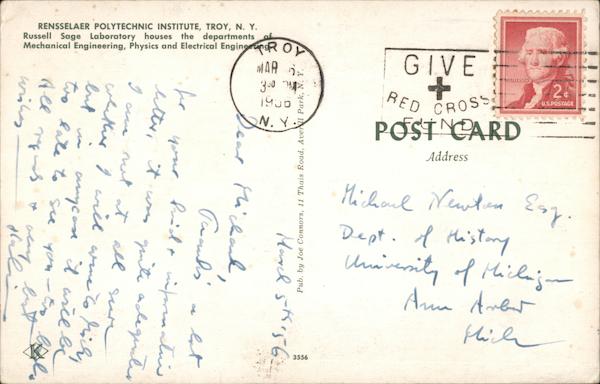 RENSSELAER POLYTECHNIC INSTITUTE, TROY, N. Y.
Russell Sage Laboratory houses the departments of
Mechanical Engineering, Physics and Electrical Engineering.
TROY
MAR 5
3 PM
1956
N.Y.
GIVE
+
RED CROSS
FUND
2¢
U.S. POSTAGE
POST CARD
Address
Michael Newton Esq.
Dept. of History
University of Michigan
Ann Arbor
Mich
Pub. by Joe Connors, 11 Thais Road, Averill Park, N. Y.
March 5th 56
Dear Michael,
Thanks a lot
for your kind & informative
letter, it was quite adequate
I am not at all sure
whether I will come to Mich,
but in anycase it will be
too late to see you —
All regards & very best
wishes —
K
3556